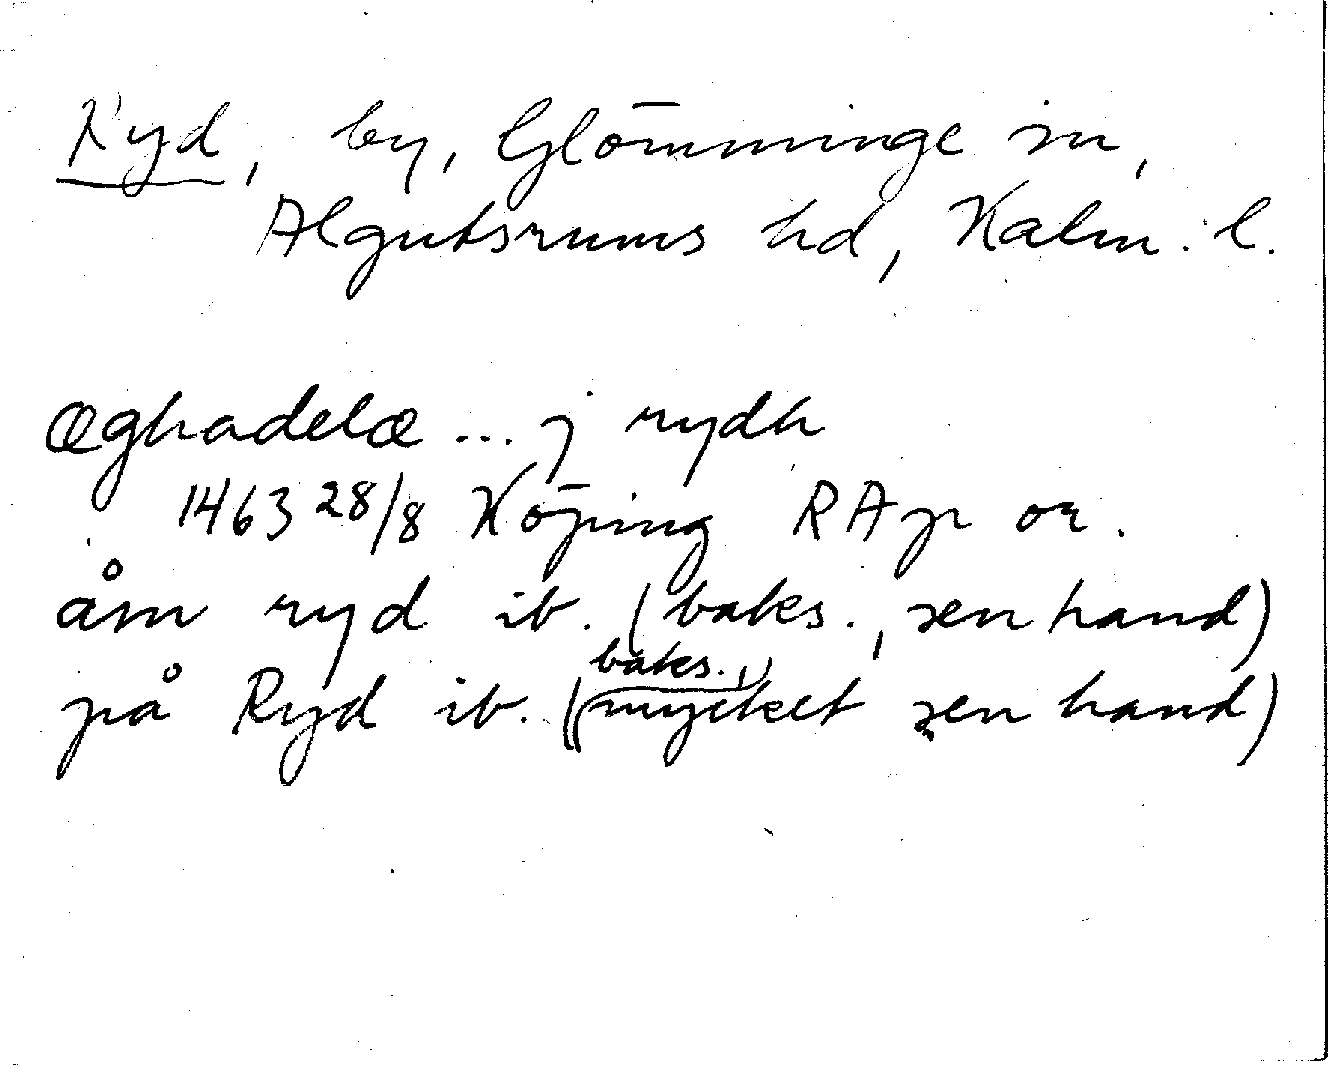 Ryd, by, Glömminge sn,
Algutsrums hd, Kalm. l.
æghadelæ ... j rydh
1463 28/8 Köping RAp or.
åm ryd ib. (baks., sen hand)
på Ryd ib. (baks., mycket sen hand)